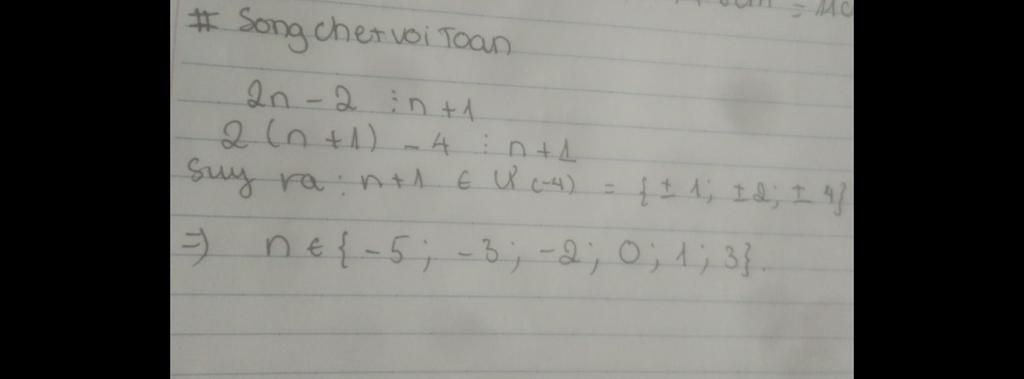 # SongchetvoiToan
2n - 2 ⋮ n + 1
2 (n + 1) - 4 ⋮ n + 1
Suy ra : n + 1 ∈ Ư (-4) = { ± 1; ± 2; ± 4}
=> n ∈ { -5 ; -3 ; -2 ; 0 ; 1 ; 3}.